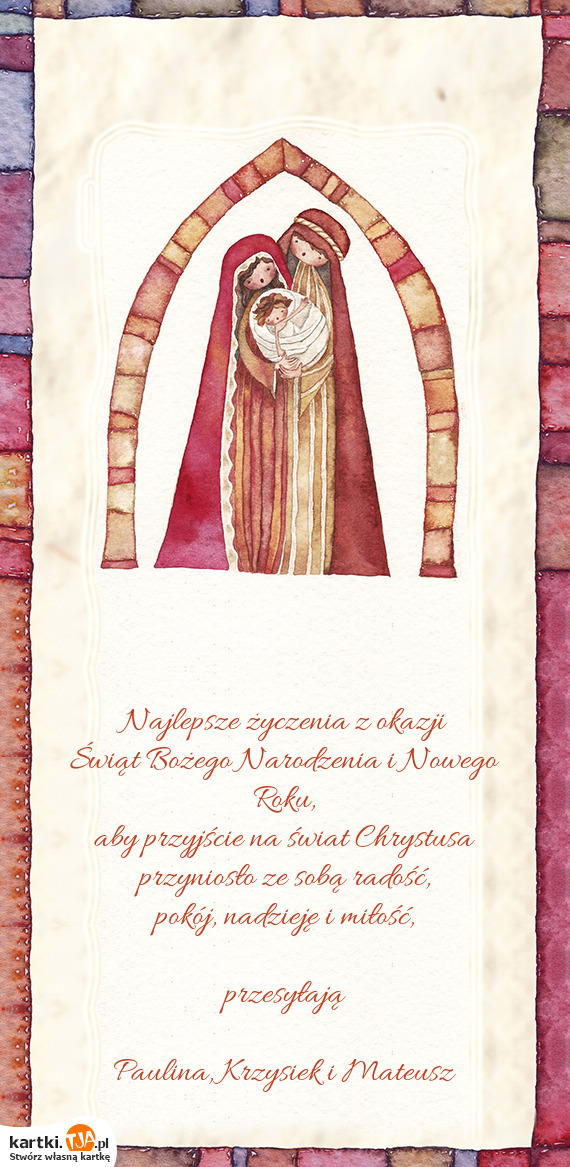 Najlepsze życzenia z okazji
Świąt Bożego Narodzenia i Nowego
Roku,
aby przyjście na świat Chrystusa
przyniosło ze sobą radość,
pokój, nadzieję i miłość,
przesyłają
Paulina, Krzysiek i Mateusz
kartki.TJA.pl
Stwórz własną kartkę